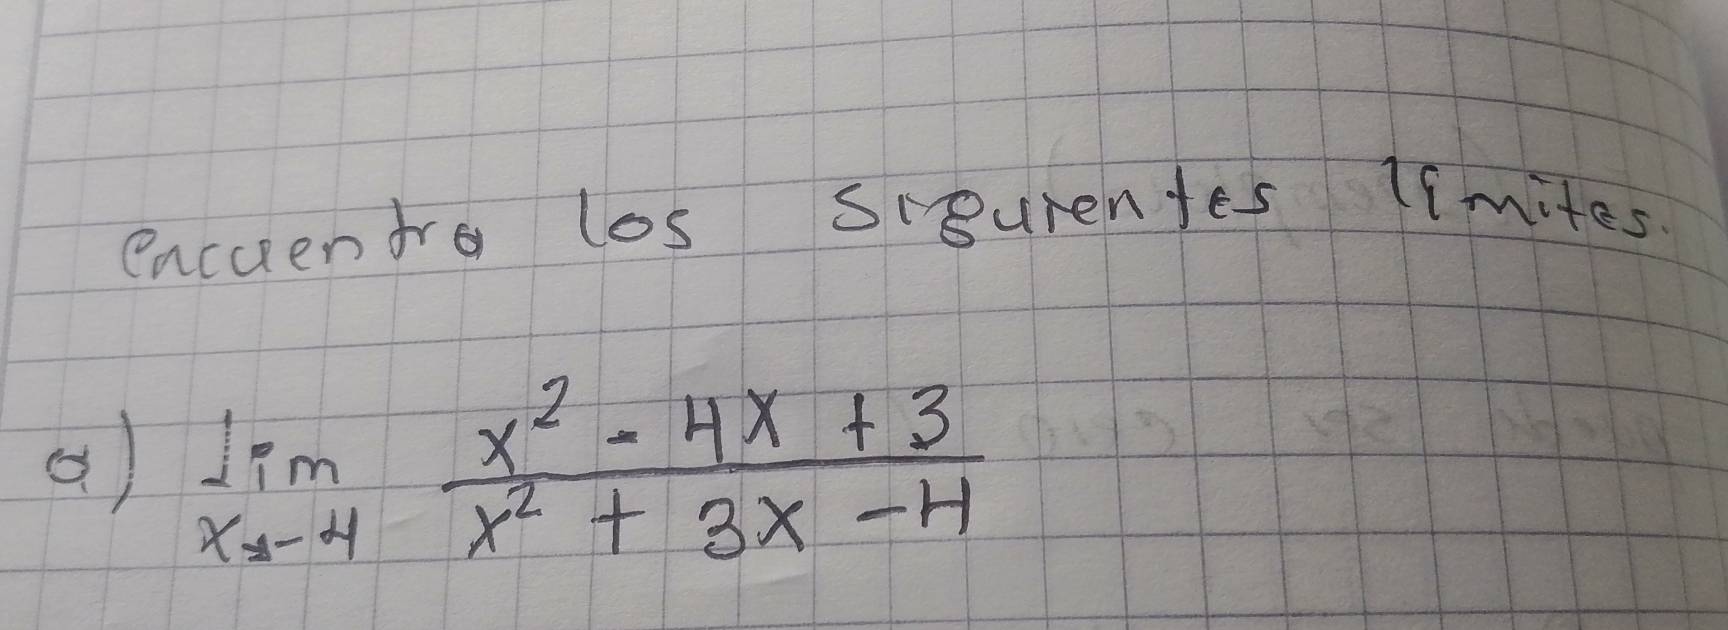 encuentra los siguientes límites.
a) Lim x² - 4x + 3
x→-4 x² + 3x - 4